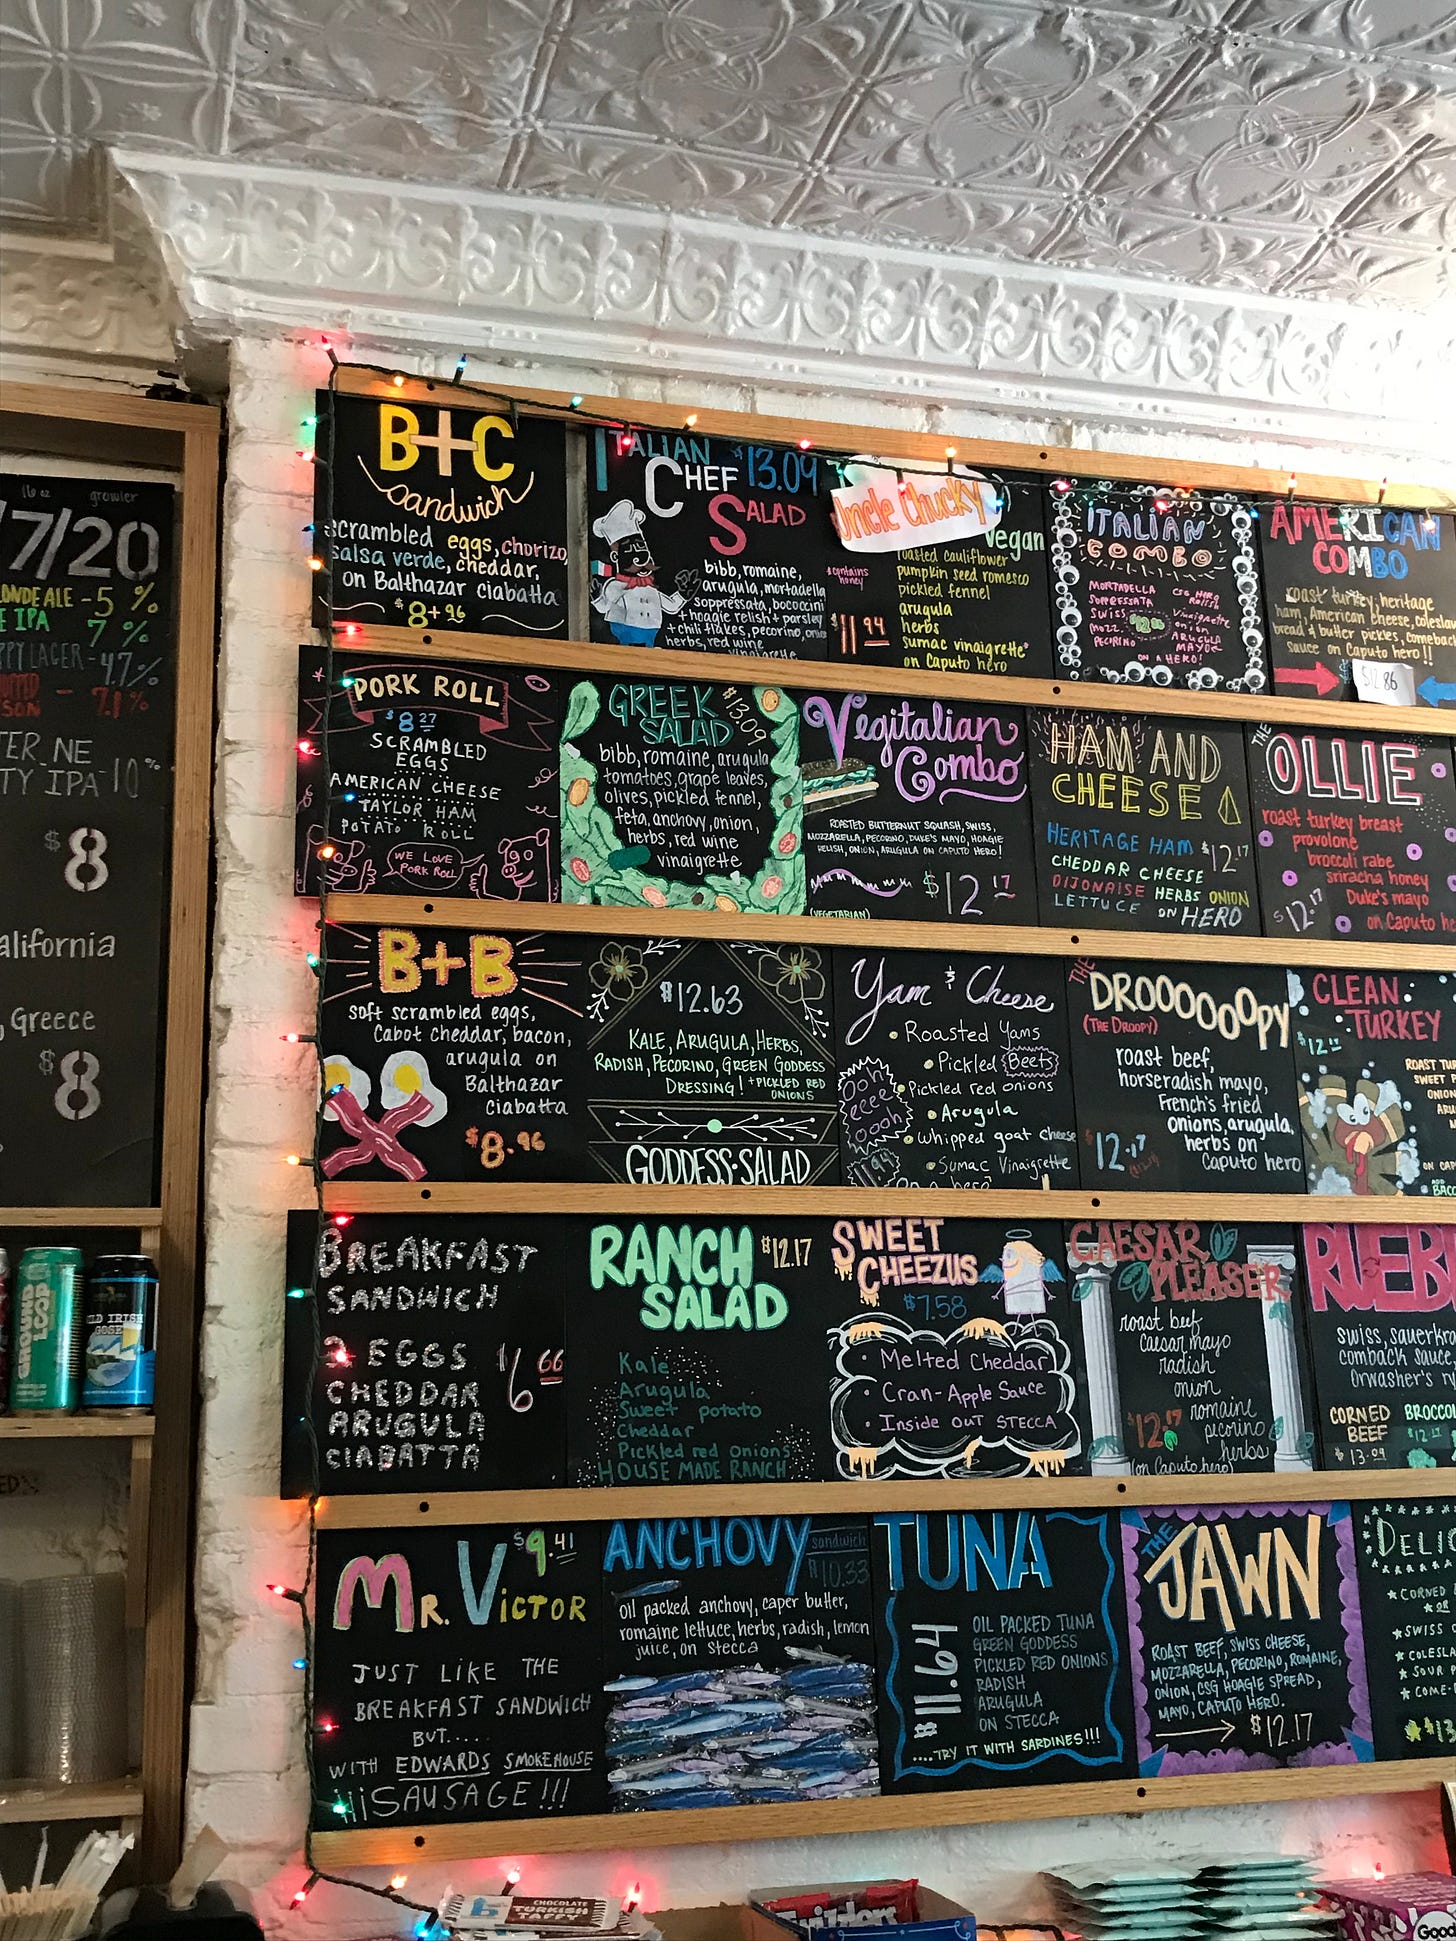 16 oz growler
7/20
LONDE ALE - 5 %
E IPA 7 %
PPY LAGER - 4.7%
SON - 7.1%
TER NE
TY IPA - 10%
$8
alifornia
, Greece
$8
B+C
sandwich
scrambled eggs, chorizo,
salsa verde, cheddar,
on Balthazar ciabatta
$8+96
ITALIAN
CHEF
SALAD
$13.09
bibb, romaine,
arugula, mortadella
soppressata, bococcini
+ hoagie relish + parsley
+ chili flakes, pecorino, onion
herbs, red wine
vinaigrette
Uncle Chucky
vegan
*contains
honey
roasted cauliflower
pumpkin seed romesco
pickled fennel
arugula
herbs
sumac vinaigrette*
on Caputo hero
$11.94
ITALIAN
COMBO
MORTADELLA
SOPPRESSATA
SWISS
MOZZ
PECORINO
CSG HOAG
RELISH
Vinaigrette
onion
ARUGULA
MAYO
ON A HERO!
AMERICAN
COMBO
roast turkey, heritage
ham, American cheese, coleslaw
bread & butter pickles, comeback
sauce on Caputo hero!!
$12.86
PORK ROLL
$8.27
SCRAMBLED
EGGS
AMERICAN CHEESE
TAYLOR HAM
POTATO ROLL
WE LOVE
PORK ROLL
GREEK
SALAD
$13.09
bibb, romaine, arugula
tomatoes, grape leaves,
olives, pickled fennel,
feta, anchovy, onion,
herbs, red wine
vinaigrette
Vegitalian
Combo
ROASTED BUTTERNUT SQUASH, SWISS,
MOZZARELLA, PECORINO, DUKE'S MAYO, HOAGIE
RELISH, ONION, ARUGULA ON CAPUTO HERO!
$12.17
(VEGETARIAN)
HAM AND
CHEESE
HERITAGE HAM
CHEDDAR CHEESE
DIJONAISE HERBS ONION
LETTUCE ON HERO
$12.17
THE
OLLIE
roast turkey breast
provolone
broccoli rabe
sriracha honey
Duke's mayo
on Caputo he
$12.17
B+B
soft scrambled eggs,
Cabot cheddar, bacon,
arugula on
Balthazar
ciabatta
$8.96
$12.63
KALE, ARUGULA, HERBS,
RADISH, PECORINO, GREEN GODDESS
DRESSING! + PICKLED RED
ONIONS
GODDESS·SALAD
Yam & Cheese
• Roasted Yams
• Pickled Beets
• Pickled red onions
• Arugula
• whipped goat cheese
• Sumac Vinaigrette
on a hero
ooh
eeee
oooh
11.94
THE
DROOOOOOPY
(THE DROOPY)
roast beef,
horseradish mayo,
French's fried
onions, arugula,
herbs on
Caputo hero
$12.17
CLEAN
TURKEY
ROAST TUR
SWEET P
ONION
ARU
ON CAP
ADD
BACO
BREAKFAST
SANDWICH
2 EGGS
CHEDDAR
ARUGULA
CIABATTA
$6.66
RANCH
SALAD
$12.17
Kale
Arugula
Sweet potato
Cheddar
Pickled red onions
HOUSE MADE RANCH
SWEET
CHEEZUS
$7.58
• Melted Cheddar
• Cran-Apple Sauce
• Inside OUT STECCA
CAESAR
PLEASER
roast beef
caesar mayo
radish
onion
romaine
pecorino
herbs
(on Caputo hero)
$12.17
RUEB
Swiss, sauerkra
comback sauce
Orwasher's ry
CORNED
BEEF
$13.09
BROCCOL
$12.17
MR. VICTOR
$9.41
JUST LIKE THE
BREAKFAST SANDWICH
BUT.....
WITH EDWARDS SMOKEHOUSE
SAUSAGE!!!
ANCHOVY
sandwich
$10.33
oil packed anchovy, caper butter,
romaine lettuce, herbs, radish, lemon
juice, on stecca
TUNA
$11.64
OIL PACKED TUNA
GREEN GODDESS
PICKLED RED ONIONS
RADISH
ARUGULA
ON STECCA
....TRY IT WITH SARDINES!!!
THE
JAWN
ROAST BEEF, SWISS CHEESE,
MOZZARELLA, PECORINO, ROMAINE,
ONION, CSG HOAGIE SPREAD,
MAYO, CAPUTO HERO.
$12.17
DELIC
★ CORNED
★ OR
★ SWISS C
★ COLESLA
★ SOUR
★ COME-
$13
GROUND
LOOP
OLD IRISH
GOSE
CHOCOLATE
TURKISH
TAFFY
Good